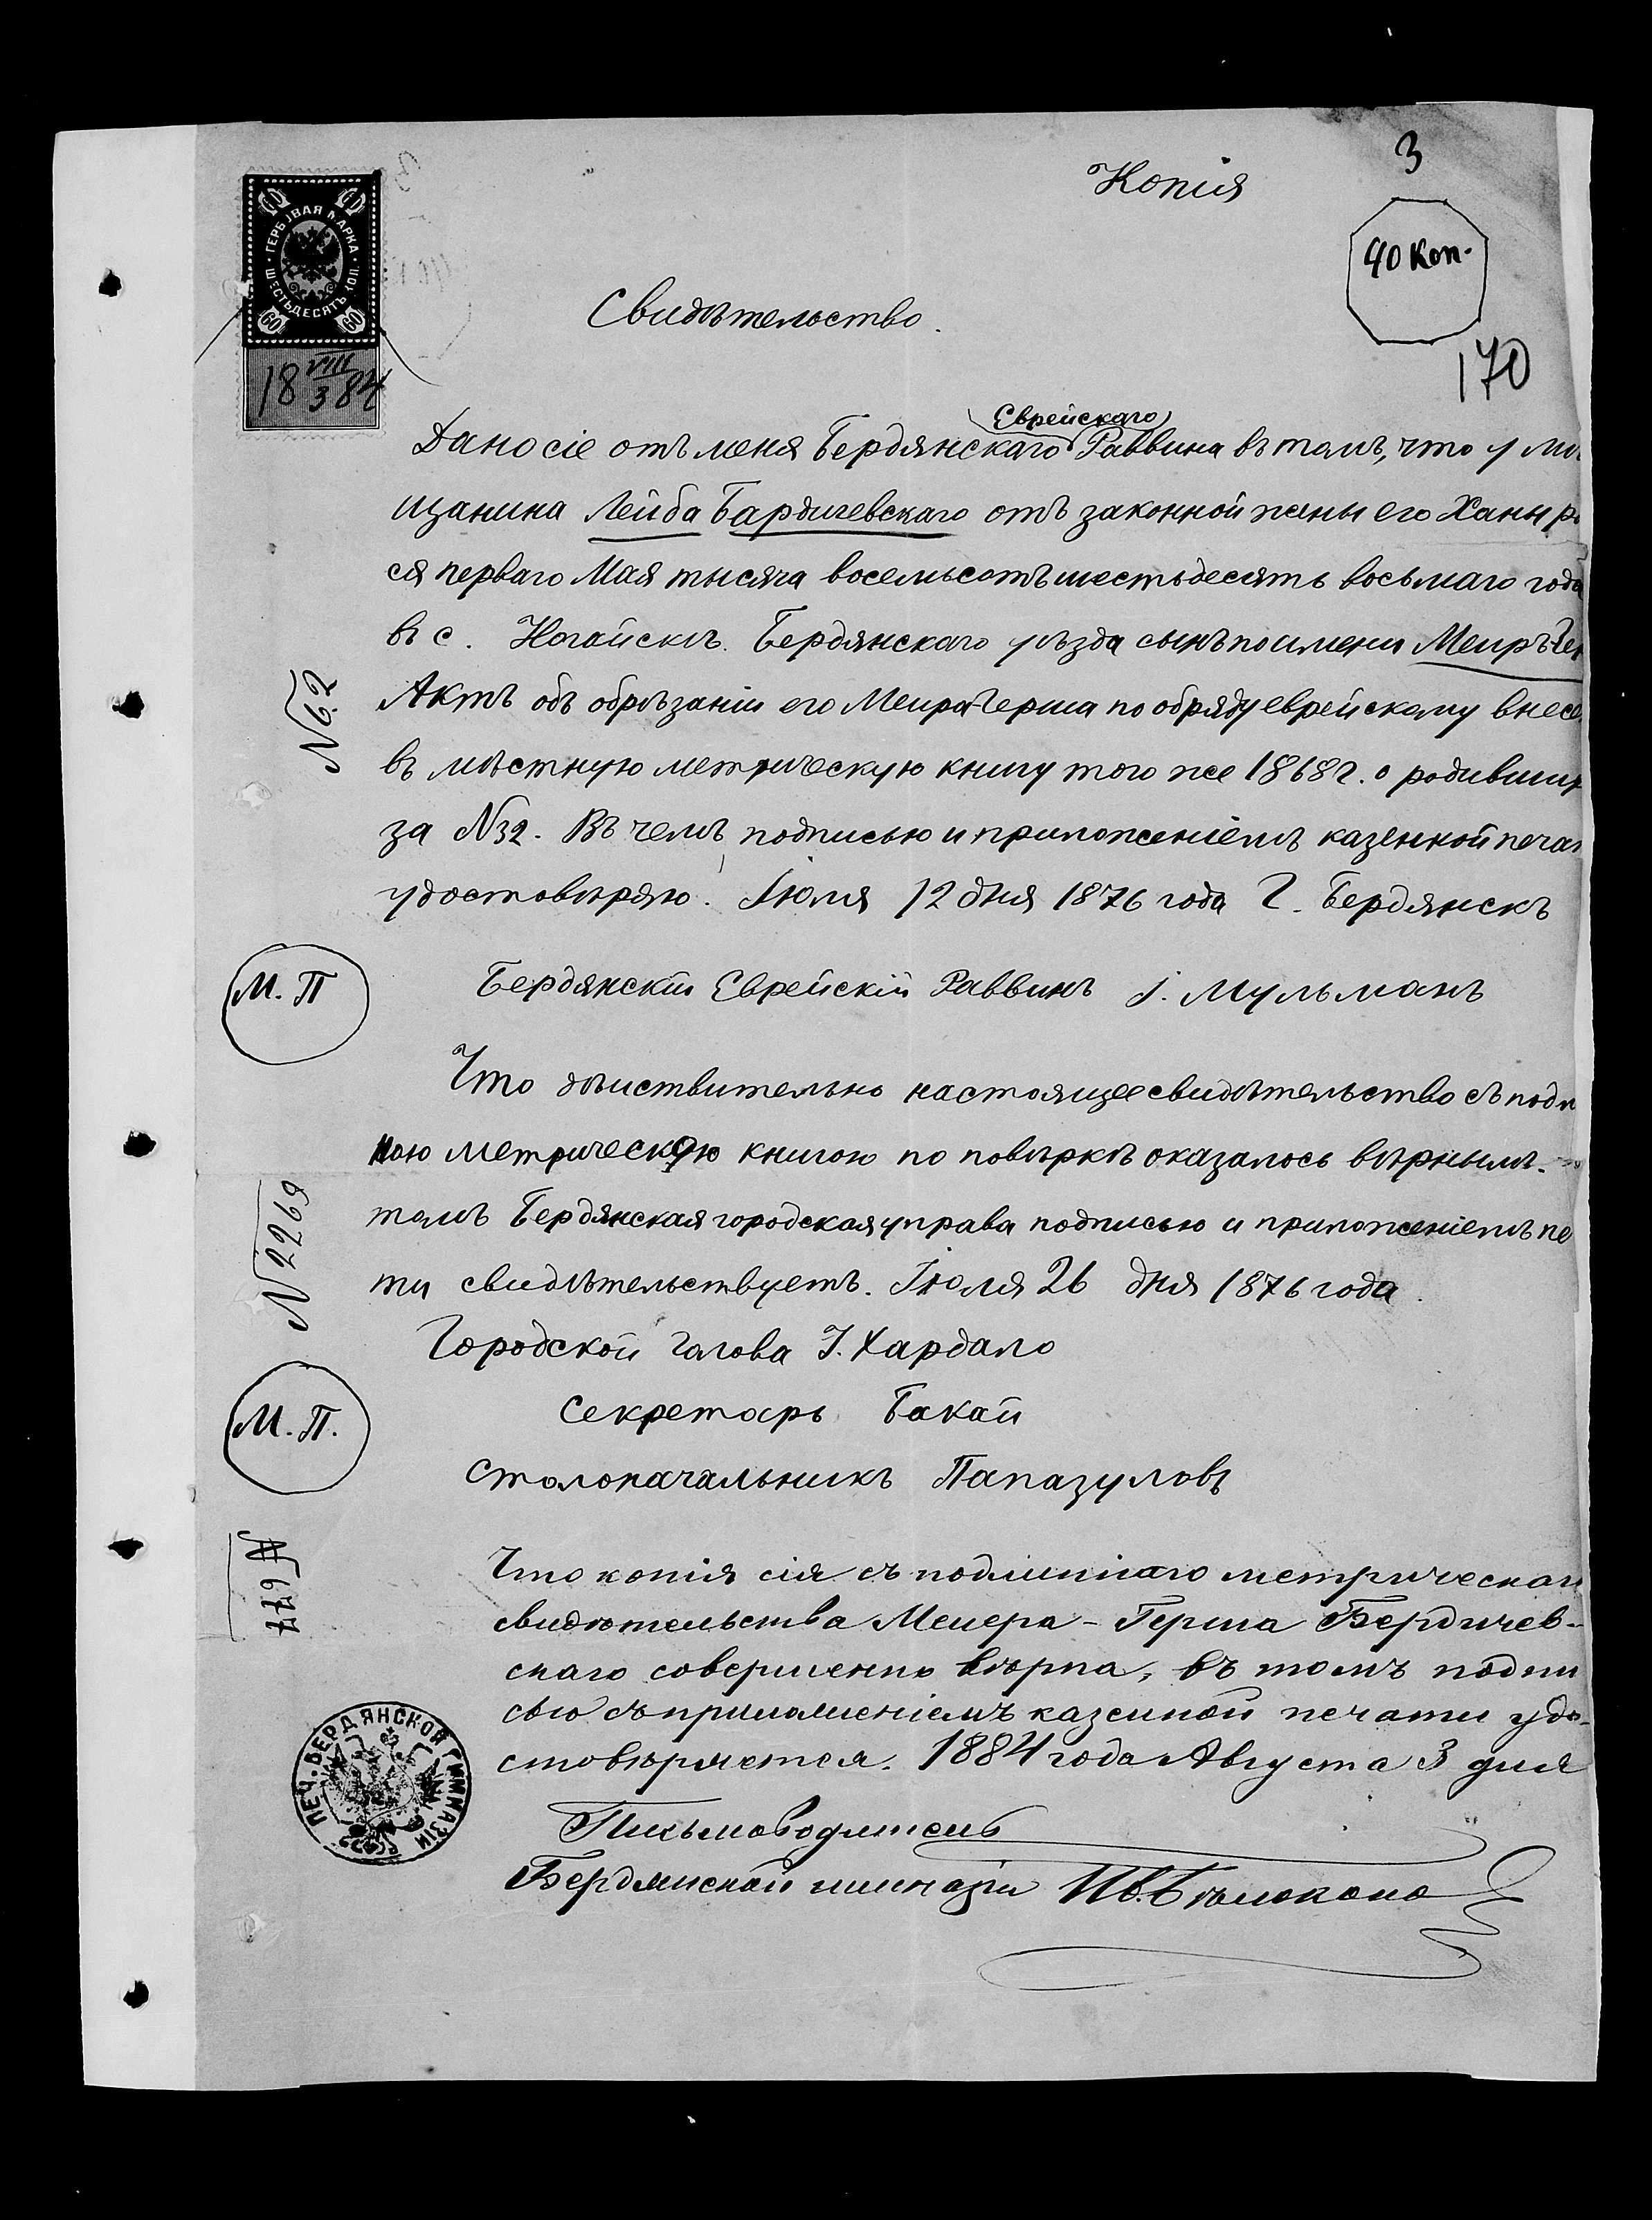 3
Копія
40 Коп.
ГЕРБОВАЯ МАРКА
ШЕСТЬДЕСЯТЪ КОП.
60 60
18 VIII/3 84
170
Свидѣтельство.
Еврейскаго
Дано сіе отъ меня Бердянскаго Раввина въ томъ, что у мѣ
щанина Лейба Бардичевскаго отъ законной жены его Ханы ро
ся перваго Мая тысяча восемьсотъ шестьдесятъ восьмаго года
въ с. Ногайскѣ Бердянскаго уѣзда сынъ по имени Меиръ Гер
№ 62
Актъ объ обрѣзаніи его Меира-Герша по обряду еврейскому внесе
въ мѣстную метрическую книгу того же 1868 г. о родивших
за №32. Въ чемъ подписью и приложеніемъ казенной печат
удостовѣряю. Іюля 12 дня 1876 года Г. Бердянскъ
М. П
Бердянскій Еврейскій Раввинъ І. Мульманъ
Что дѣйствительно настоящее свидѣтельство съ подл
ною метрическою книгою по повѣркѣ оказалось вѣрнымъ.
№ 2269
томъ Бердянская городская управа подписью и приложеніемъ пе
ти свидѣтельствуетъ. Іюля 26 дня 1876 года.
Городской Голова І. Хардало
М. П.
Секретарь Бакай
Столоначальникъ Папазуловъ
№ 677
Что копія сія съ подлиннаго метрическаго
свидѣтельства Меиера-Герша Бердичев-
скаго совершенно вѣрна, въ томъ подпи
сью съ приложеніемъ казенной печати удо-
стовѣряется. 1884 года Августа 3 дня
ПЕЧ. БЕРДЯНСКОЙ ГИМНАЗІИ
Письмоводитель
Бердянской гимназіи Ив. Бѣлоконо